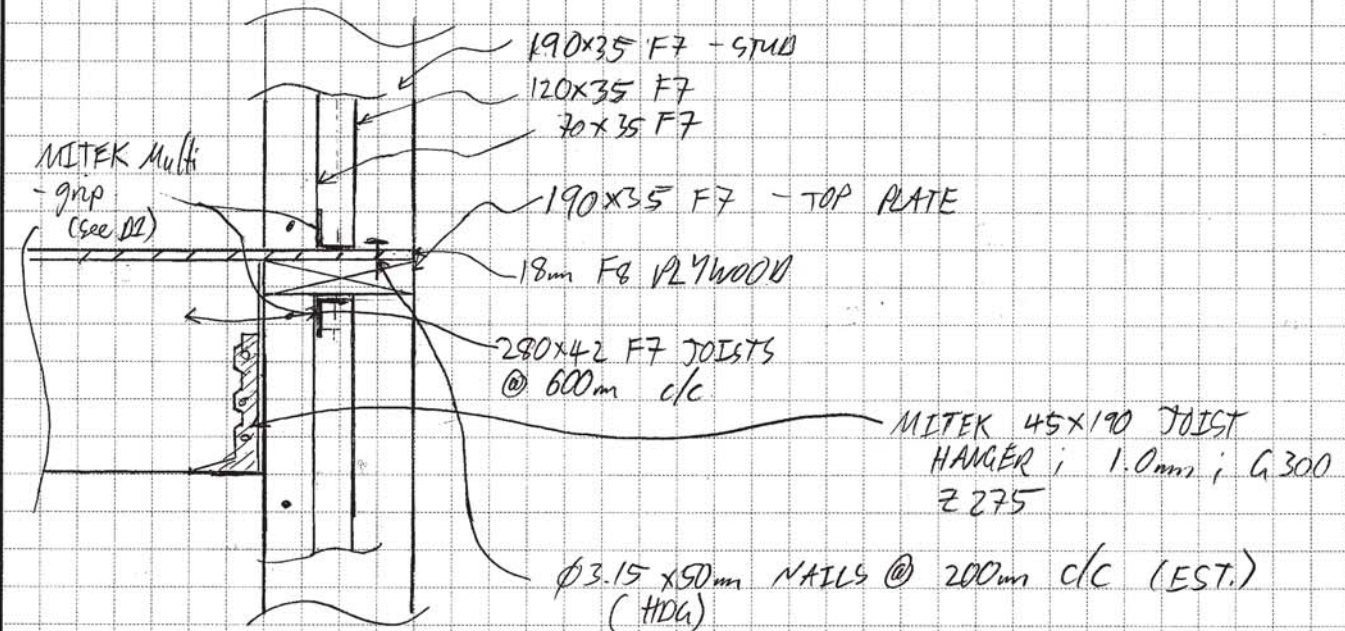 190x35 F7 - STUD
120x35 F7
70x35 F7
MITEK Multi
- grip
(see D2)
190x35 F7 - TOP PLATE
18mm F8 PLYWOOD
280x42 F7 JOISTS
@ 600mm c/c
MITEK 45x190 JOIST
HANGER ; 1.0mm ; G300
Z275
Ø3.15 x50mm NAILS @ 200mm c/c (EST.)
(HDG)